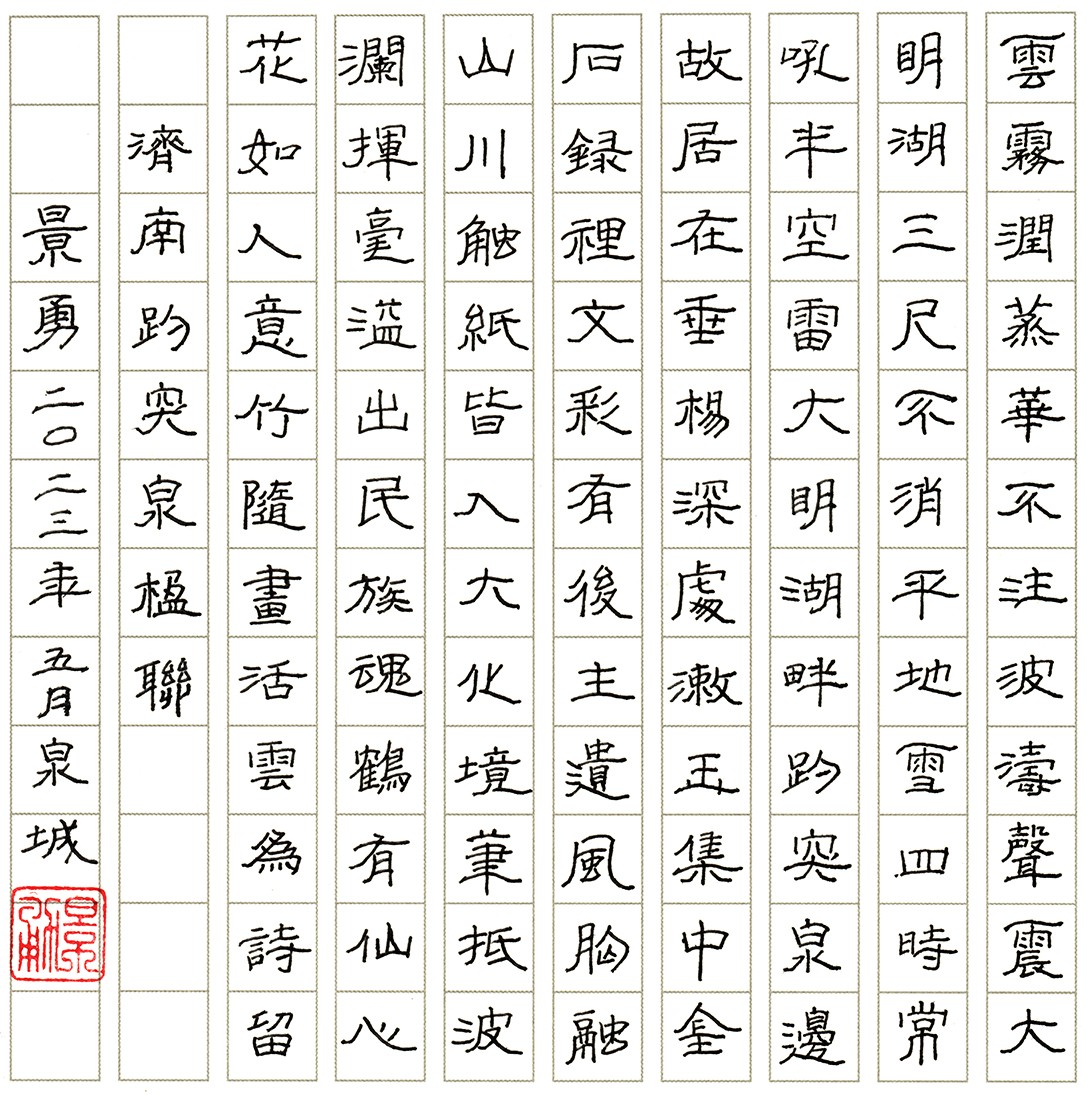 雲霧潤蒸華不注波濤聲震大
明湖三尺不消平地雪四時常
吼半空雷大明湖畔趵突泉邊
故居在垂楊深處漱玉集中金
石録裡文彩有後主遺風胸融
山川觸紙皆入大化境筆抵波
瀾揮毫溢出民族魂鶴有仙心
花如人意竹隨畫活雲為詩留
濟南趵突泉楹聯
景勇二〇二三年五月泉城
景勇